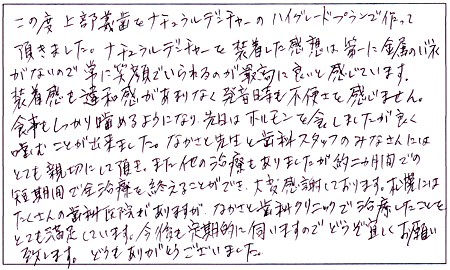 この度上部義歯をナチュラルデンチャーのハイグレードプランで作って
頂きました。ナチュラルデンチャーを装着した感想は第一に金属のバネ
がないので常に笑顔でいられるのが最高に良いと感じています。
装着感も違和感があまりなく発音時も不便さを感じません。
食事もしっかり噛めるようになり先日はホルモンを食しましたが良く
噛むことが出来ました。なかさと先生と歯科スタッフのみなさんには
とても親切にして頂き、また他の治療もありましたが約二カ月間での
短期間で全治療を終えることができ、大変感謝しております。札幌には
たくさんの歯科医院がありますが、なかさと歯科クリニックで治療したことを
とても満足しています。今後も定期的に伺いますのでどうぞ宜しくお願い
致します。どうもありがとうございました。